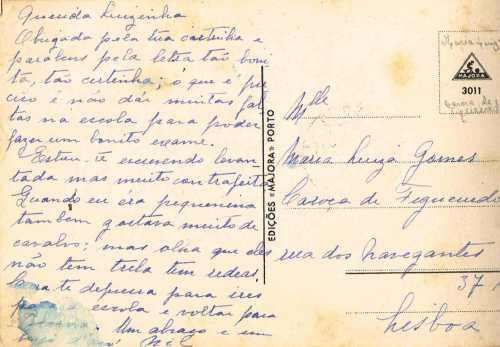 Querida Luizinha
Obrigada pela tua cartinha e
parabens pela letra tão boni
ta, tão certinha; o que é pre
ciso é não dár muitas fal
tas na escola para poder
fazer um bonito exame.
Estou-te escrevendo levan
tada mas muito contrafeita
Quando eu éra pequenina
tambem gostava muito de
cavalos; mas olha que eles
não tem trela tem redeas,
para ires
escola e voltar para
Um abraço e um
EDIÇÕES «MAJORA» PORTO
MAJORA
3011
Mlle
Maria Luiza Gomes
Caroça de Figueiredo
rua dos Navegantes
37
Lisboa